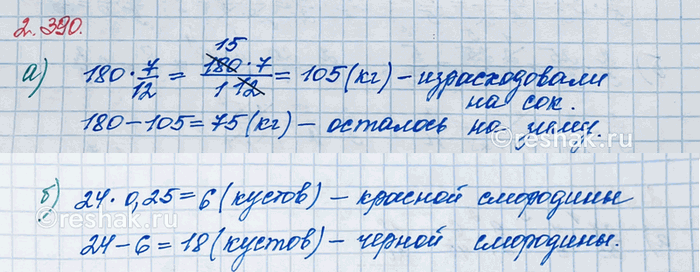 2.390.
а) 180 · 7/12 = 15 180 · 7 / 1 12 = 105 (кг) – израсходовали
на сок.
180 – 105 = 75 (кг) – осталось на зиму.
б) 24 · 0,25 = 6 (кустов) – красной смородины
24 – 6 = 18 (кустов) – черной смородины.
©reshak.ru